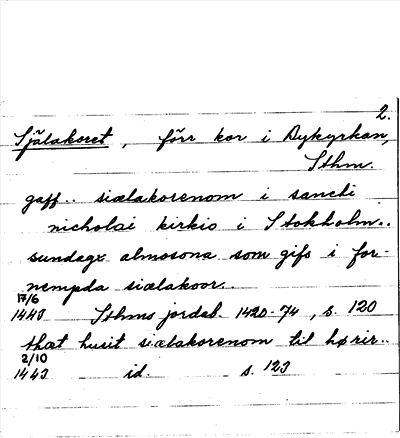 2.
Själakoret, förr kor i Bykyrkan,
Sthm.
gaff.. siælakorenom i sancti
nicholai kirkio i Stokholm..
sundagx almosona som gifs i for-
nempda siælakoor..
17/6
1443 Sthms jordab. 1420-74, s. 120
thæt husit siælakorenom til hører..
2/10
1443 id. s. 123